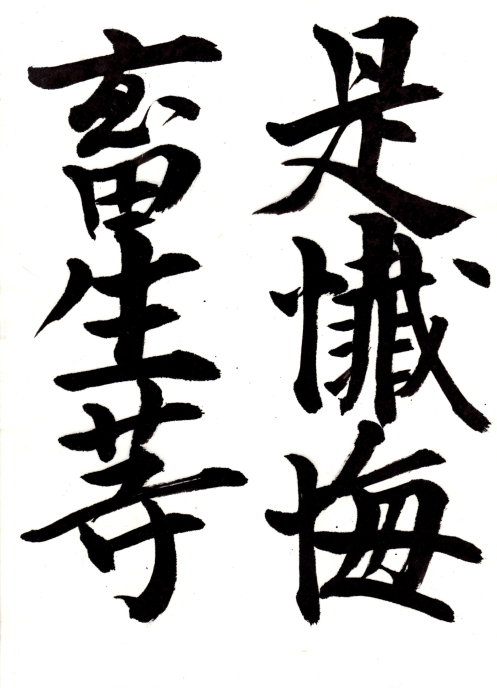 是懺悔
畜生等